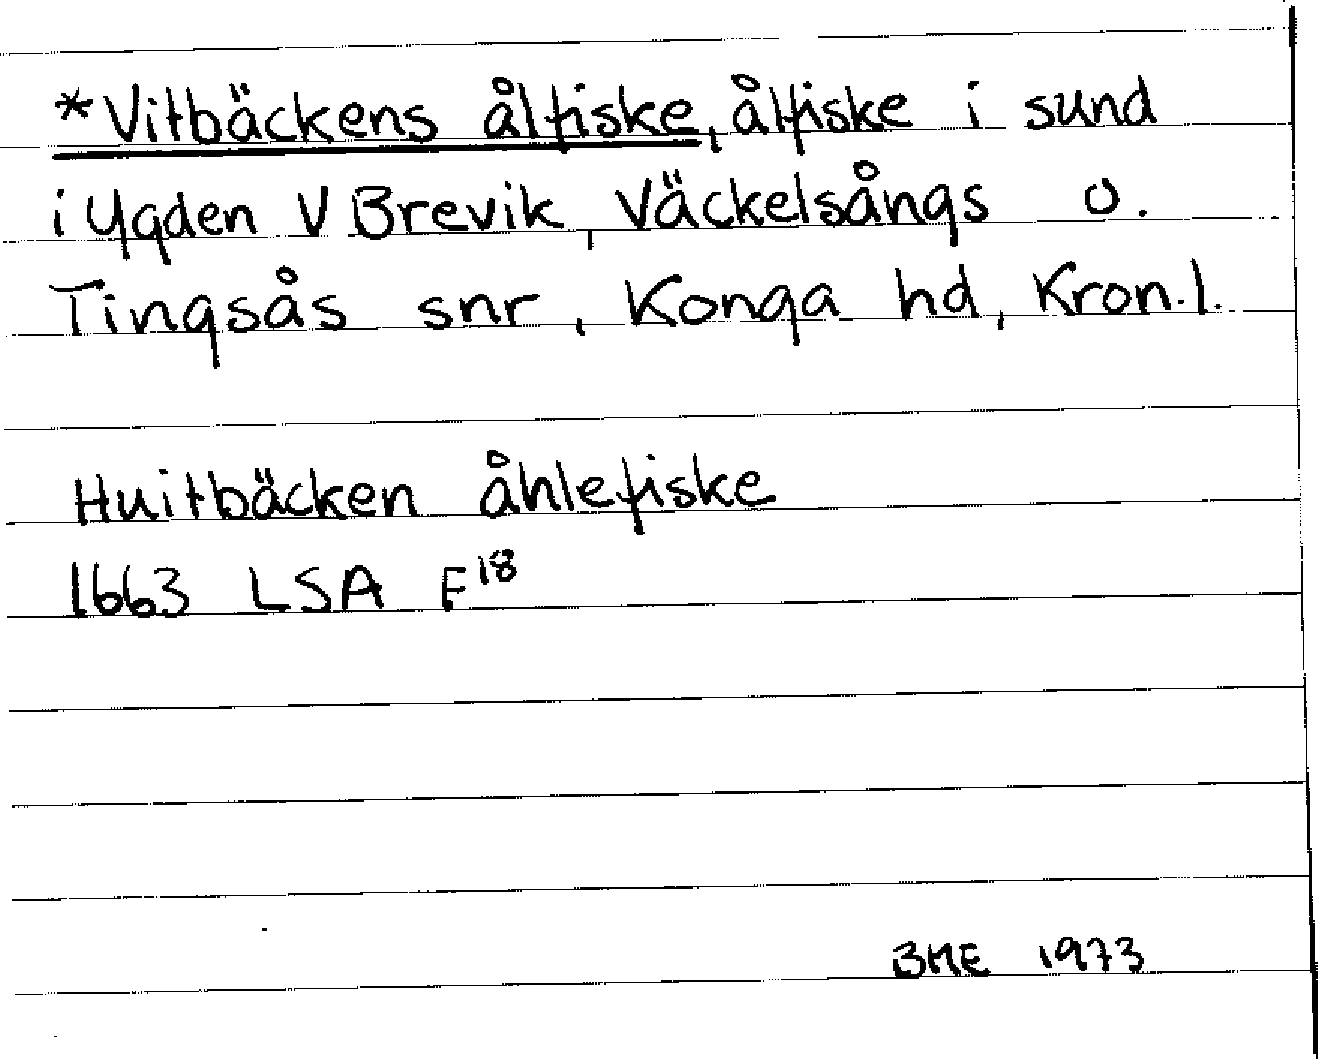 *Vitbäckens ålfiske, ålfiske i sund
i Ygden V Brevik, Väckelsångs o.
Tingsås snr, Konga hd, Kron.l.
Huitbäcken åhlefiske
1663 LSA F18
BME 1973